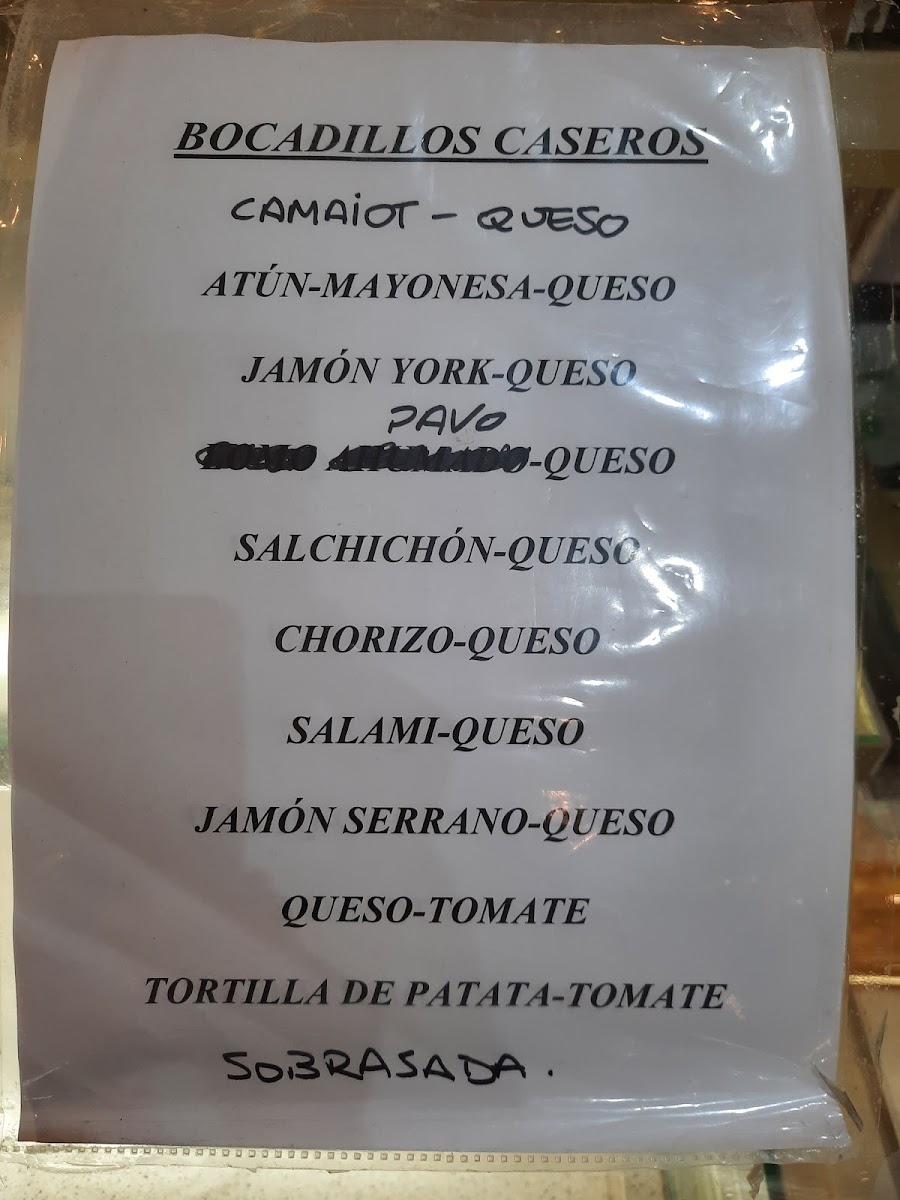 BOCADILLOS CASEROS
CAMAIOT - QUESO
ATÚN-MAYONESA-QUESO
JAMÓN YORK-QUESO
PAVO
-QUESO
SALCHICHÓN-QUESO
CHORIZO-QUESO
SALAMI-QUESO
JAMÓN SERRANO-QUESO
QUESO-TOMATE
TORTILLA DE PATATA-TOMATE
SOBRASADA.